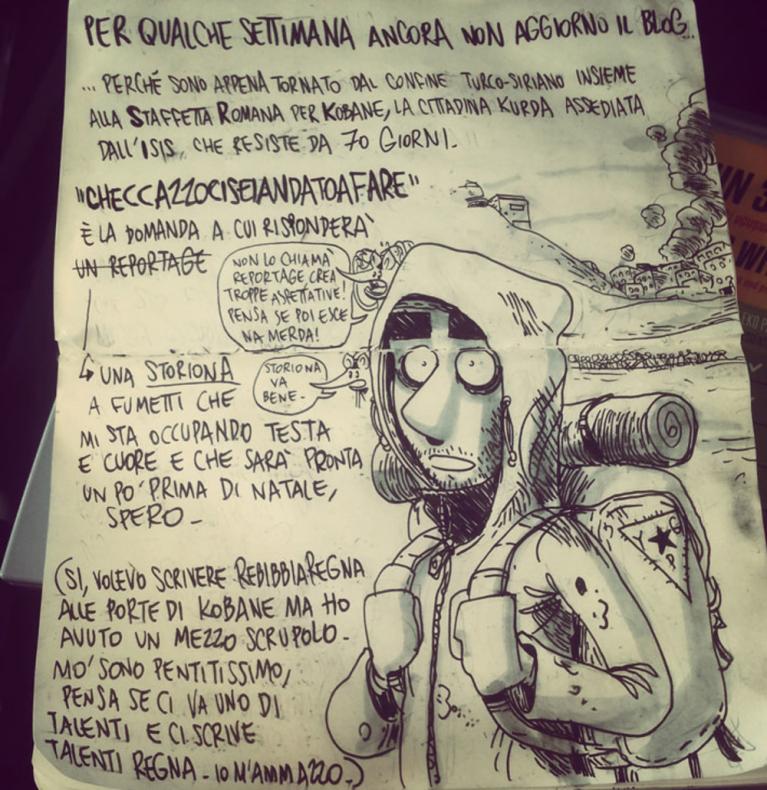 PER QUALCHE SETTIMANA ANCORA NON AGGIORNO IL BLOG..
... PERCHÉ SONO APPENA TORNATO DAL CONFINE TURCO-SIRIANO INSIEME
ALLA STAFFETTA ROMANA PER KOBANE, LA CITTADINA KURDA ASSEDIATA
DALL'ISIS, CHE RESISTE DA 70 GIORNI.
"CHECCAZZOCISEIANDATOAFARE"
È LA DOMANDA A CUI RISPONDERÀ
UN REPORTAGE
NON LO CHIAMÀ
REPORTAGE, CREA
TROPPE ASPETTATIVE!
PENSA SE POI ESCE
NA MERDA!
UNA STORIONA
STORIONA
VA
BENE-
A FUMETTI CHE
MI STA OCCUPANDO TESTA
E CUORE E CHE SARÀ PRONTA
UN PO' PRIMA DI NATALE,
SPERO-
(SI, VOLEVO SCRIVERE REBIBBIAREGNA
ALLE PORTE DI KOBANE MA HO
AVUTO UN MEZZO SCRUPOLO-
MO' SONO PENTITISSIMO,
PENSA SE CI VA UNO DI
TALENTI E CI SCRIVE
TALENTI REGNA- IO M'AMMAZZO.)
Y P G